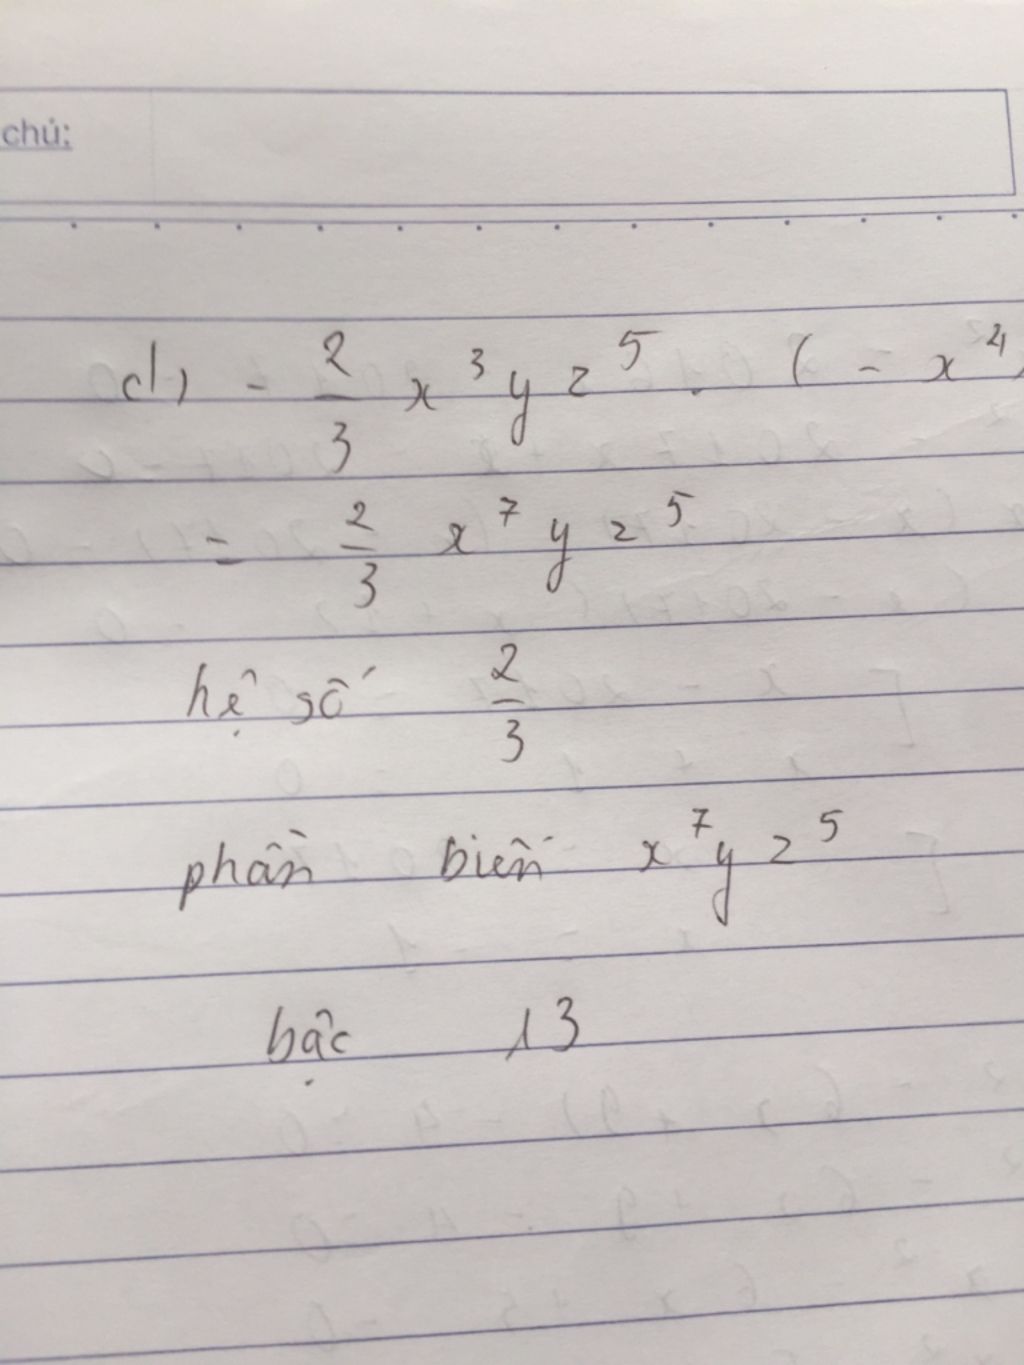 chú:
d) - 2/3 x³yz⁵ . (- x⁴)
= 2/3 x⁷yz⁵
hệ số 2/3
phần biến x⁷yz⁵
bậc 13